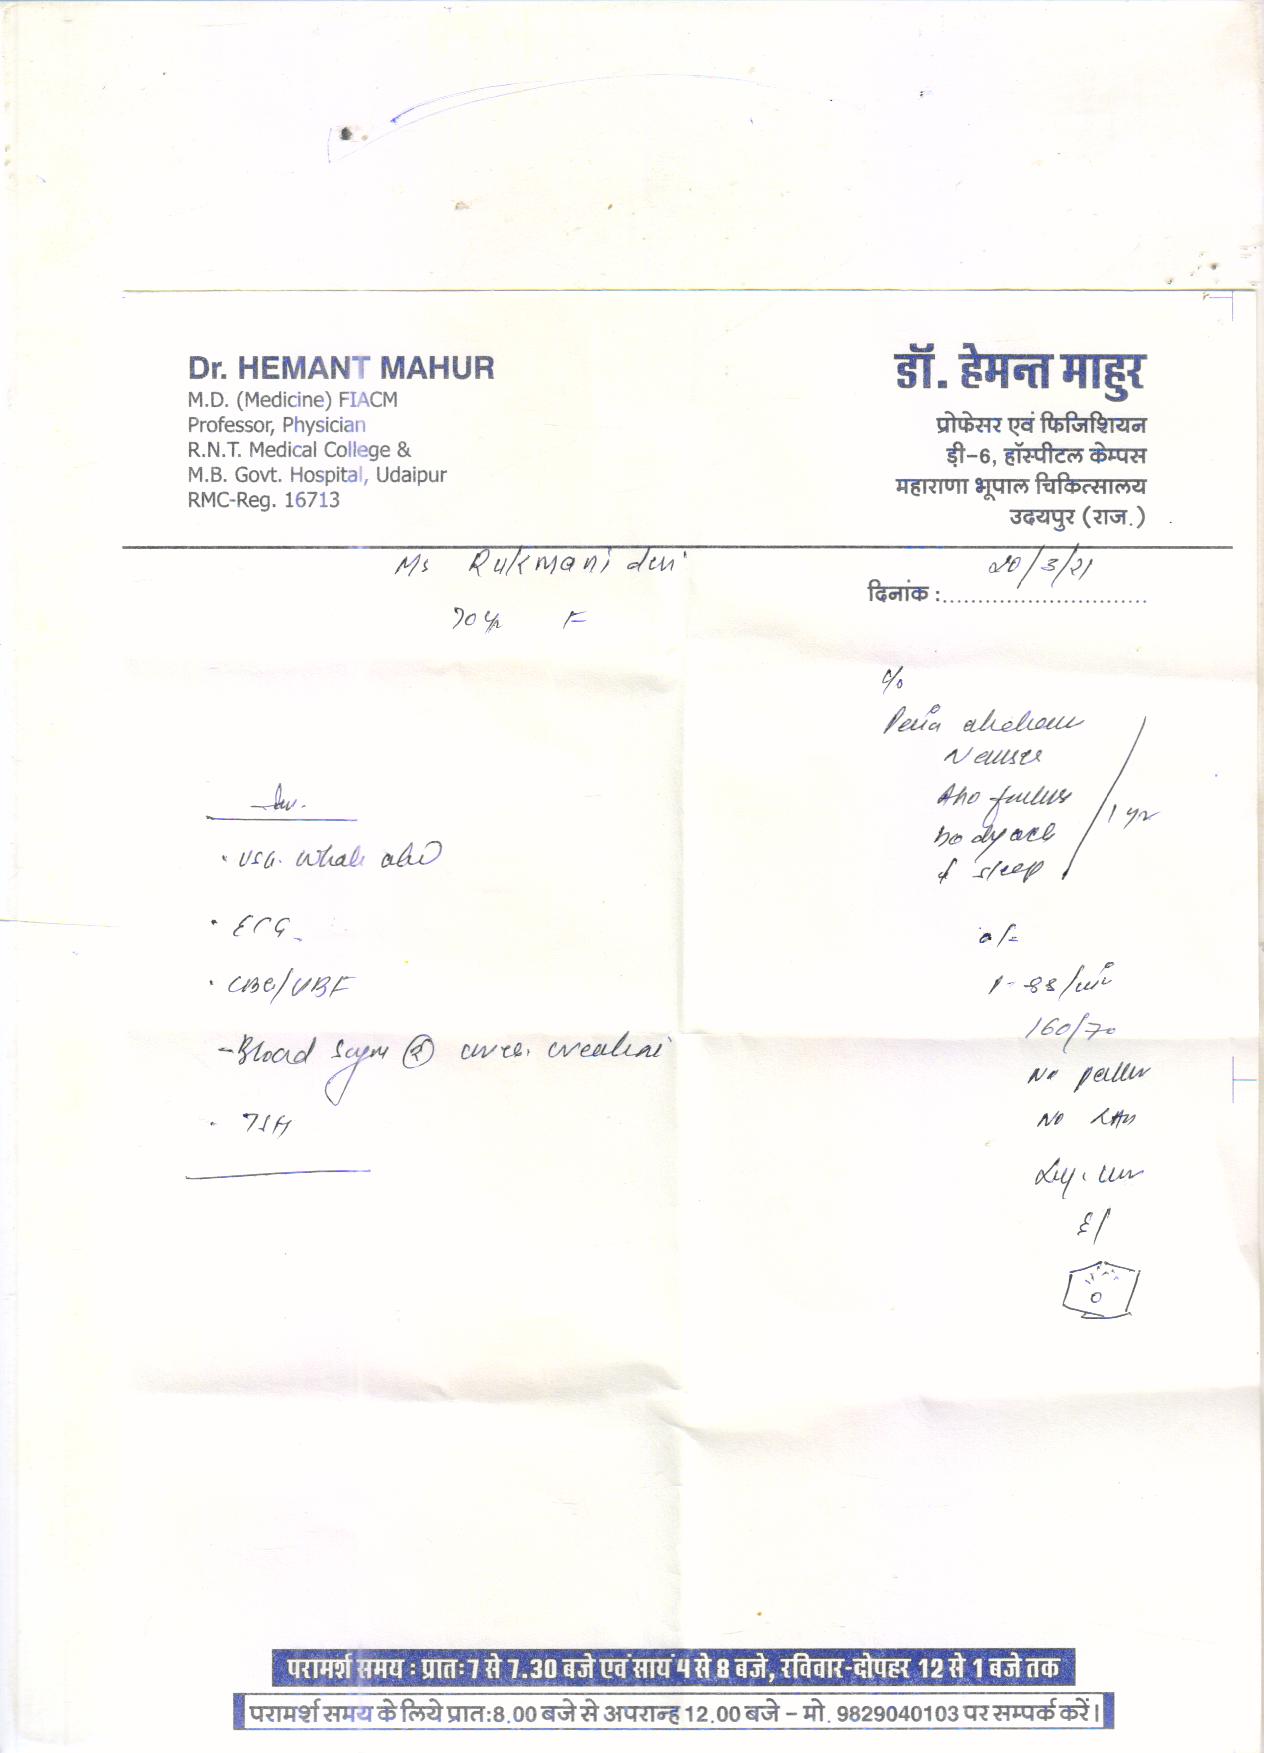 Dr. HEMANT MAHUR
M.D. (Medicine) FIACM
Professor, Physician
R.N.T. Medical College &
M.B. Govt. Hospital, Udaipur
RMC-Reg. 16713
डॉ. हेमन्त माहुर
प्रोफेसर एवं फिजिशियन
ड़ी-6, हॉस्पीटल केम्पस
महाराणा भूपाल चिकित्सालय
उदयपुर (राज.)
Ms Rukmani devi
70 yr F
20/3/21
दिनांक :.............................
c/o
Pain abdomen
Nausea
bodyache
sleep
1 yr
o/e
P- 88/min
160/70
No pallor
No
Inv.
• USG. Whole abd
• ECG
• CBC/
- Blood Sugar (R) urea. creatini
• TSH
परामर्श समय : प्रातः 7 से 7.30 बजे एवं सायं 4 से 8 बजे, रविवार-दोपहर 12 से 1 बजे तक
परामर्श समय के लिये प्रात:8.00 बजे से अपरान्ह 12.00 बजे – मो. 9829040103 पर सम्पर्क करें।